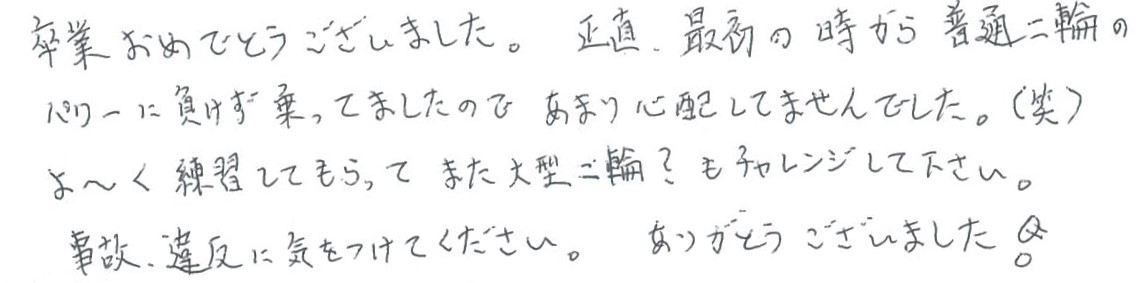 卒業おめでとうございました。 正直、最初の時から普通二輪の
パワーに負けず乗ってましたので あまり心配してませんでした。(笑)
よ〜く練習してもらって また大型二輪?もチャレンジして下さい。
事故、違反に気をつけてください。 ありがとうございました!